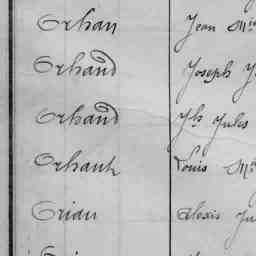 Orhan Jean Mie
Orhand Joseph J
Orhand Jh Jules
Orhant Louis Me
Orian Alexis Ju